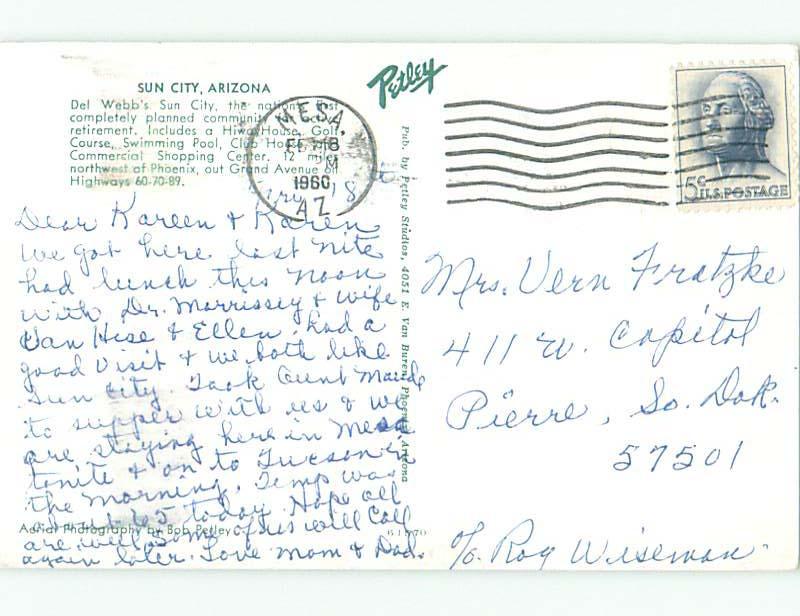 SUN CITY, ARIZONA
Del Webb's Sun City, the nation's first
completely planned community for active
retirement. Includes a HiwayHouse, Golf
Course, Swimming Pool, Club House, and
Commercial Shopping Center. 12 miles
northwest of Phoenix, out Grand Avenue on
Highways 60-70-89.
Petley
MESA,
FEB 8
M
1966
AZ
5c
U.S. POSTAGE
Pub. by Petley Studios, 4051 E. Van Buren, Phoenix, Arizona
8
Dear Kareen & Karen
We got here last nite
had lunch this noon
with Dr. Morrissey & wife
Van Hise & Ellen, had a
good visit & we both like
Sun City. Took Aunt Maude
to supper with us & we
are staying here in Mesa
tonite & on to Tucson in
the morning. Temp was
65 today. Hope all
Aerial Photography by Bob Petley
are well. Some of us will Call
again later. Love Mom & Dad.
Mrs. Vern Fratzke
411 W. Capitol
Pierre, So. Dak.
57501
c/o. Roy Wiseman